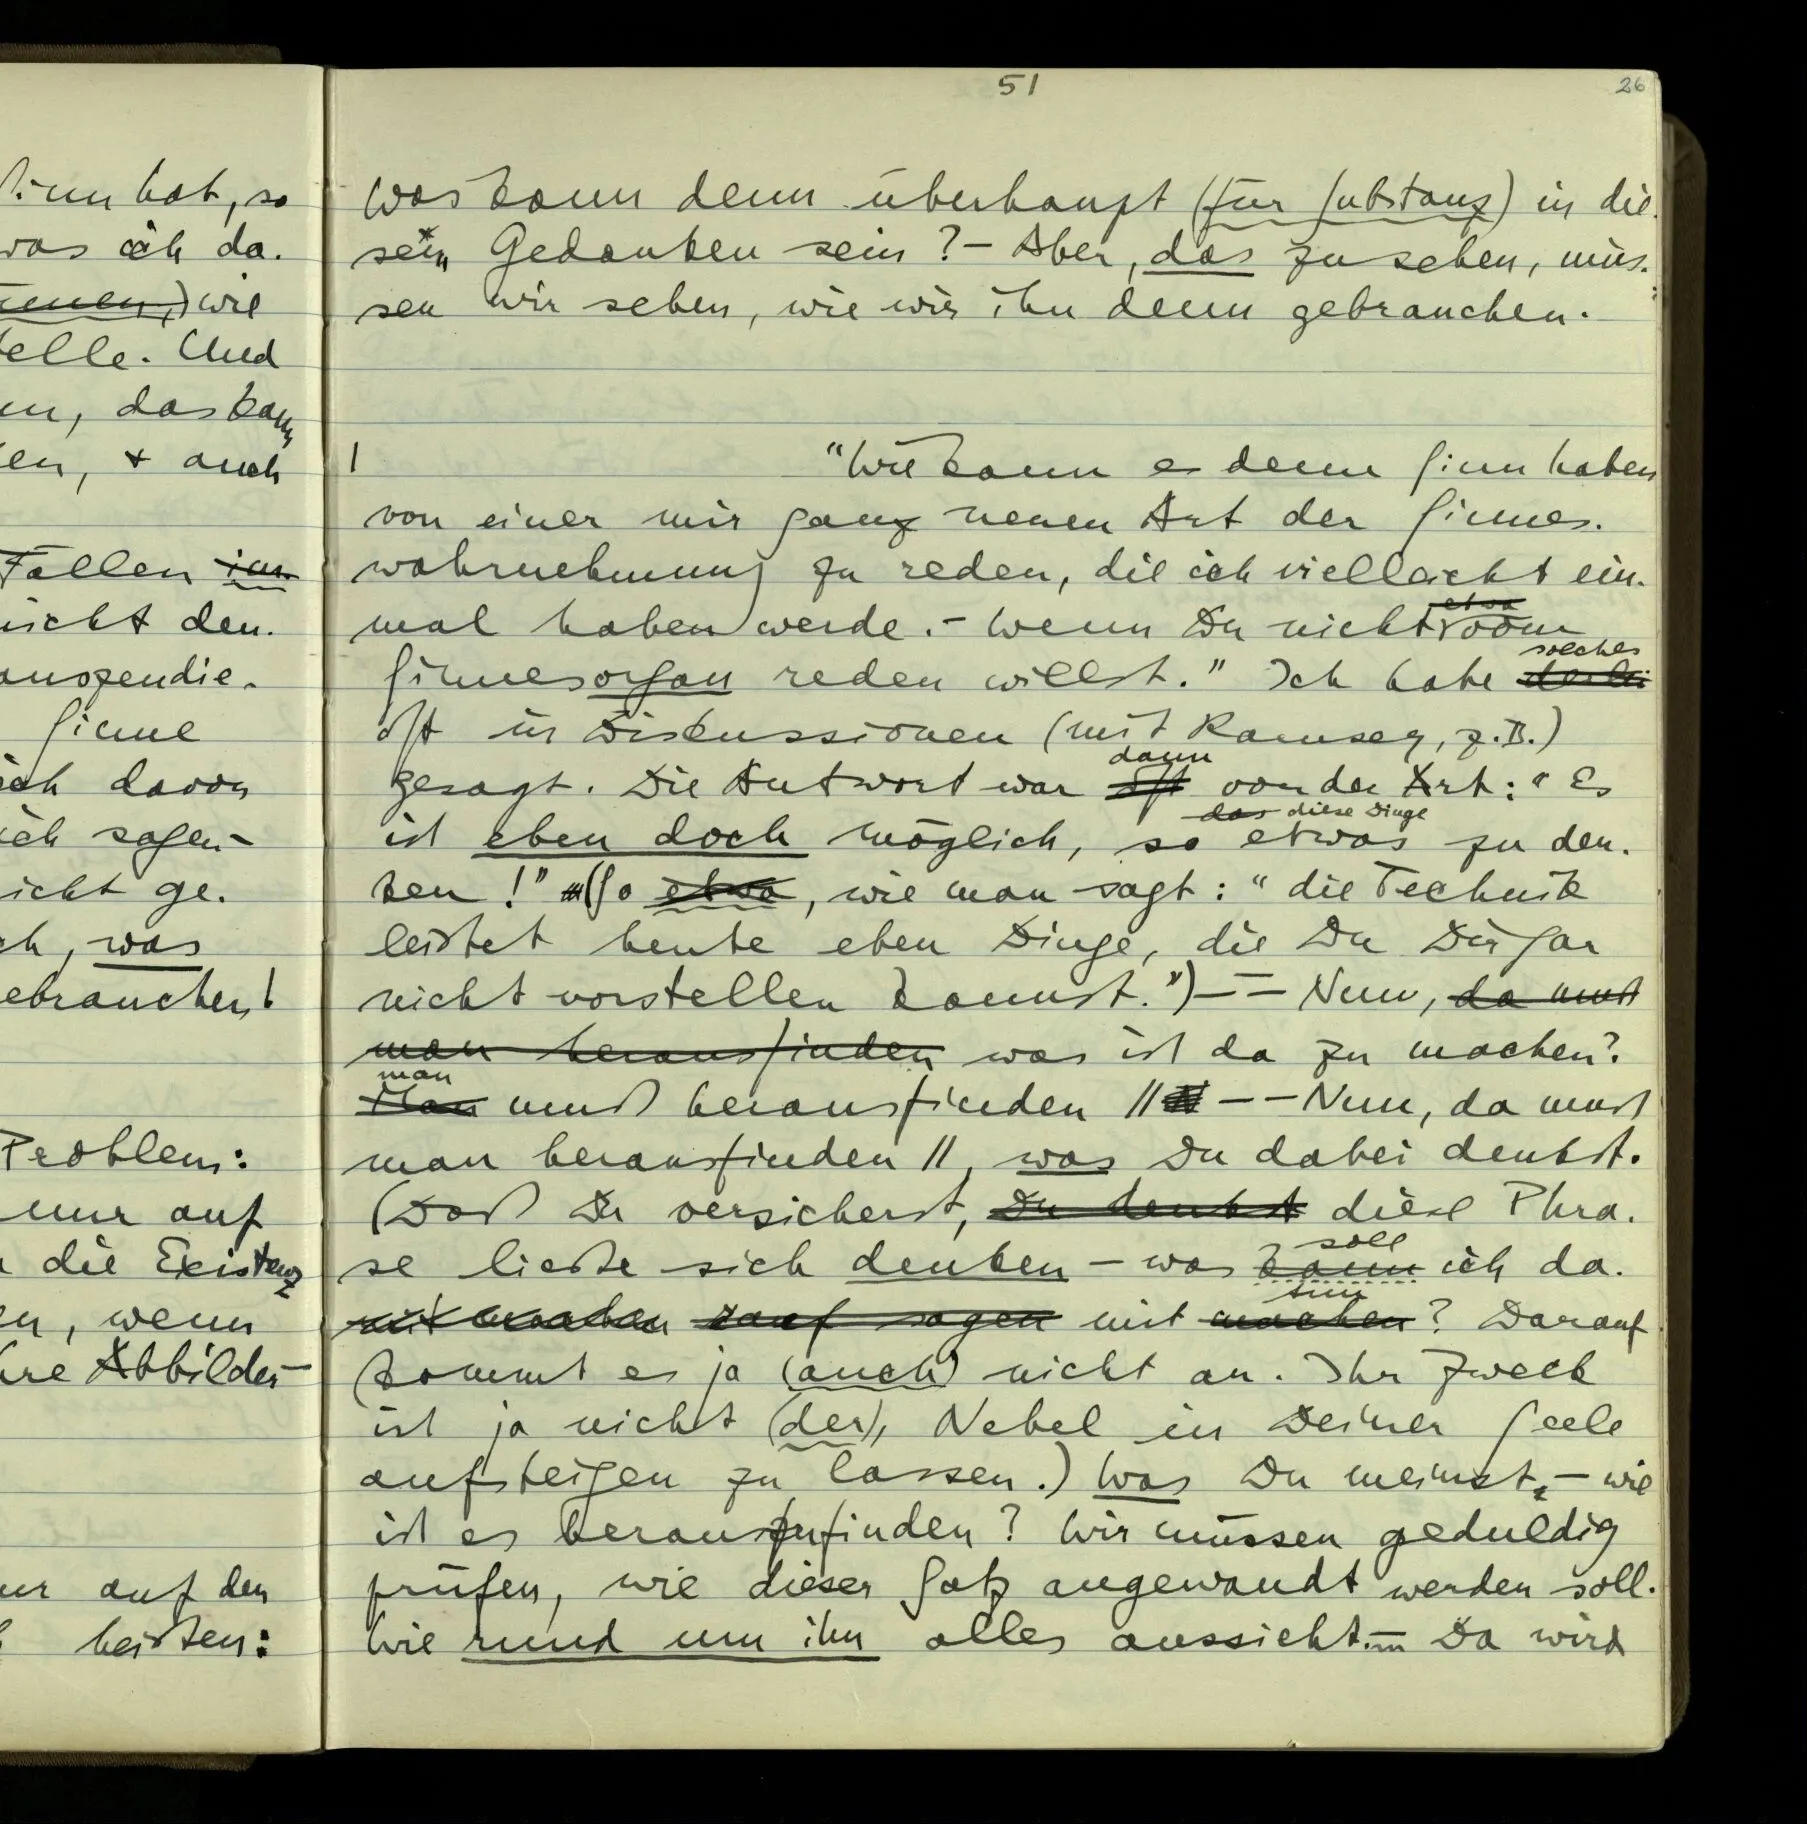 51
26
Sinn hat, so
was ich da-
wie
telle. Und
en, das kann
en, + auch
Fällen im
nicht den-
anspendie-
Sinne
ich davon
ich sagen –
nicht ge-
ch, was
gebrauchst
Problem:
nur auf
die Existenz
en, wenn
hre Abbilder –
ur auf den
heißen:
Was kann denn überhaupt (für Substanz) in die-
sem Gedanken sein? – Aber, das zu sehen, müs-
sen wir sehen, wie wir ihn denn gebrauchen.
| “Wie kann es denn Sinn haben
von einer mir ganz neuen Art der Sinnes-
wahrnehmung zu reden, die ich vielleicht ein-
etwa
mal haben werde. – Wenn Du nicht vom
solches
Sinnesorgan reden willst.” Ich habe derlei
oft in Diskussionen (mit Ramsey, z.B.)
dann
gesagt. Die Antwort war oft von der Art: “Es
das diese Dinge
ist eben doch möglich, so etwas zu den-
ken!” (So etwa, wie man sagt: “die Technik
leistet heute eben Dinge, die Du Dir gar
nicht vorstellen kannst.”) – – Nun, da muß
man herausfinden was ist da zu machen?
man
Man muß herausfinden // – – Nun, da muß
man herausfinden //, was Du dabei denkst.
(Daß Du versicherst, Du denkst diese Phra-
soll
se ließe sich denken – was kann ich da-
tun
mit machen rauf sagen mit machen? Darauf
kommt es ja (auch) nicht an. Ihr Zweck
ist ja nicht (der), Nebel in Deiner Seele
aufsteigen zu lassen.) Was Du meinst, – wie
ist es herauszufinden? Wir müssen geduldig
prüfen, wie dieser Satz angewandt werden soll.
Wie rund um ihn alles aussieht. – Da wird